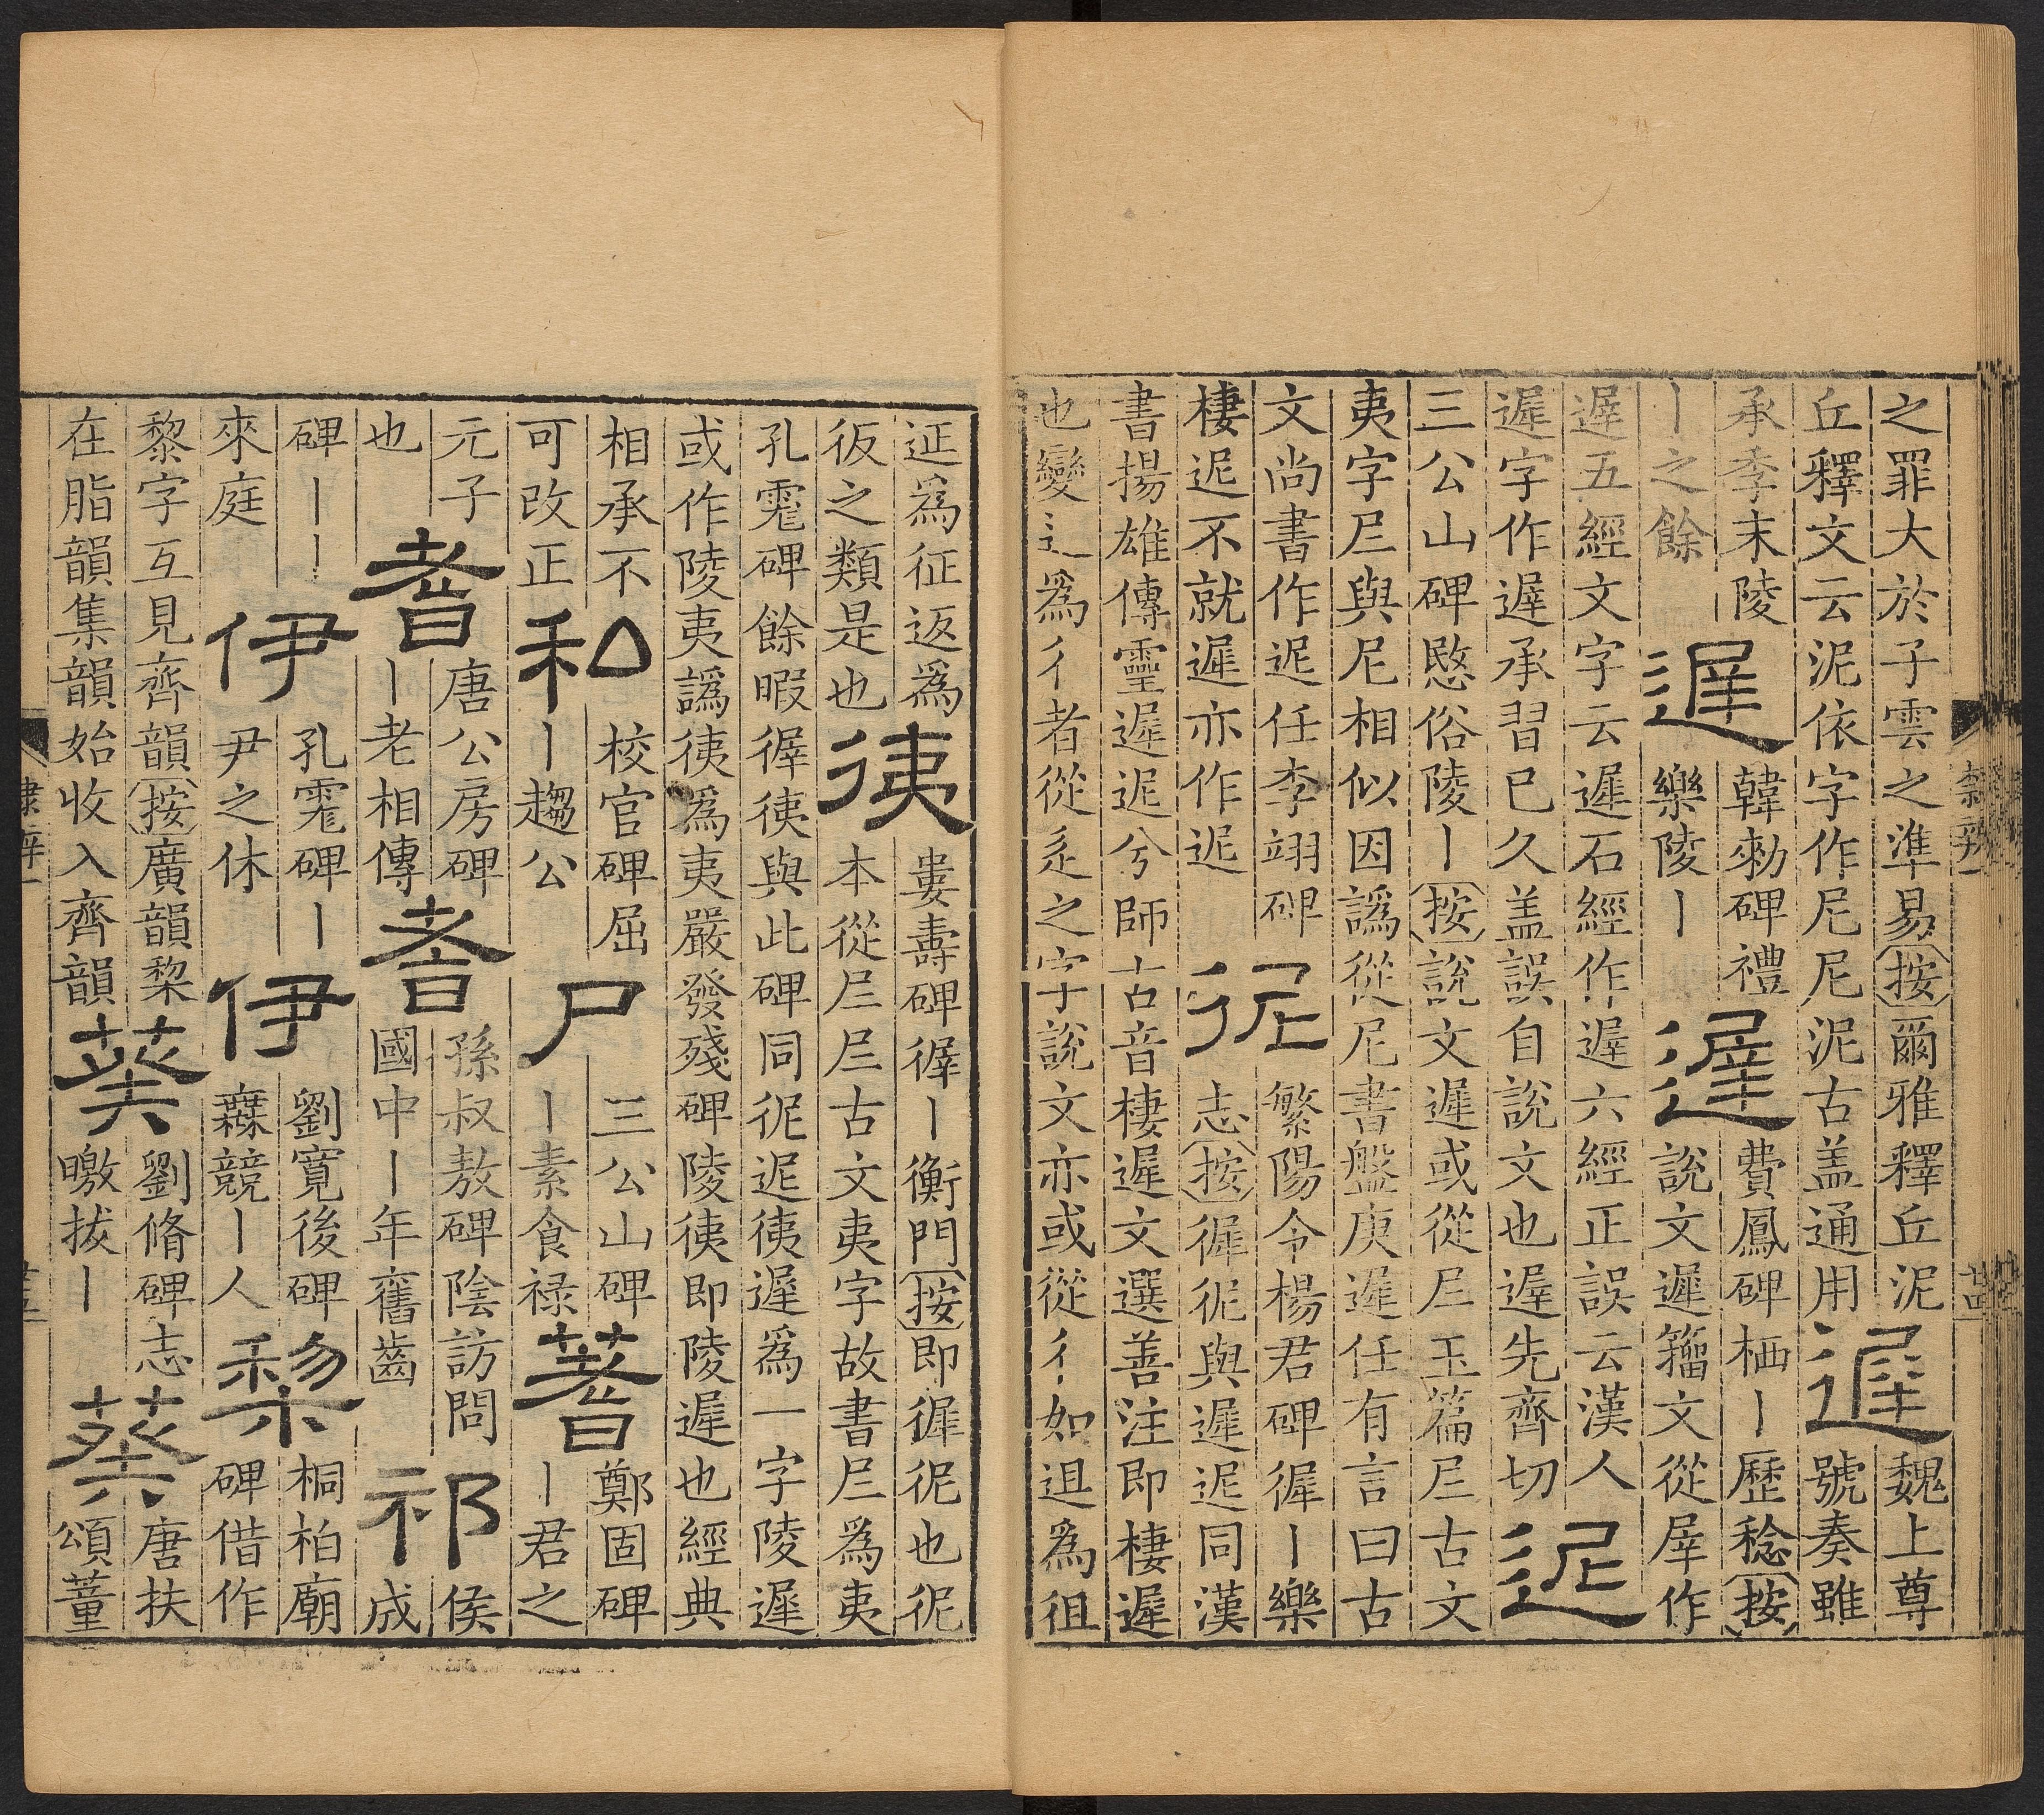 之罪大於子雲之準易按爾雅釋丘泥
丘釋文云泥依字作尼尼泥古盖通用
遲
魏上尊
號奏雖
承季末陵
丨之餘
遟
韓勑碑禮
樂陵丨
遟
費鳳碑栖丨歷稔按
說文遲籀文從屖作
遟五經文字云遲石經作遟六經正誤云漢人
遲字作遟承習已久盖誤自說文也遟先齊切
迡
三公山碑愍俗陵丨按說文遲或從𡰥玉篇𡰥古文
夷字𡰥與尼相似因譌從尼書盤庚遲任有言曰古
文尚書作迡任李翊碑
棲迡不就遲亦作迡
㣇
繁陽令楊君碑徲丨樂
志按徲㣇與遲迡同漢
書揚雄傳靈遲迡兮師古音棲遲文選善注即棲遲
也變辶為彳者從辵之字說文亦或從彳如迌為徂
延為征返為
彶之類是也
徚
婁壽碑徲丨衡門按即徲㣇也㣇
本從𡰥𡰥古文夷字故書𡰥為夷
孔宙碑餘暇徲徚與此碑同㣇迡徚遲為一字陵遲
或作陵夷譌徚為夷嚴發殘碑陵徚即陵遲也經典
相承不
可改正
和厶
校官碑屈
丨趨公
尸
三公山碑
丨素食祿
蓍
鄭固碑
丨君之
元子
也
耆
唐公房碑
丨老相傳
耆
孫叔敖碑陰訪問
國中丨年舊齒
祁
侯
成
碑丨丨
來庭
伊
孔宙碑丨
尹之休
伊
劉寬後碑
蘇競丨人
棃
桐柏廟
碑借作
黎字互見齊韻按廣韻棃
在脂韻集韻始收入齊韻
葵
劉脩碑志
曒拔丨
葵
唐扶
頌董
隸辨一